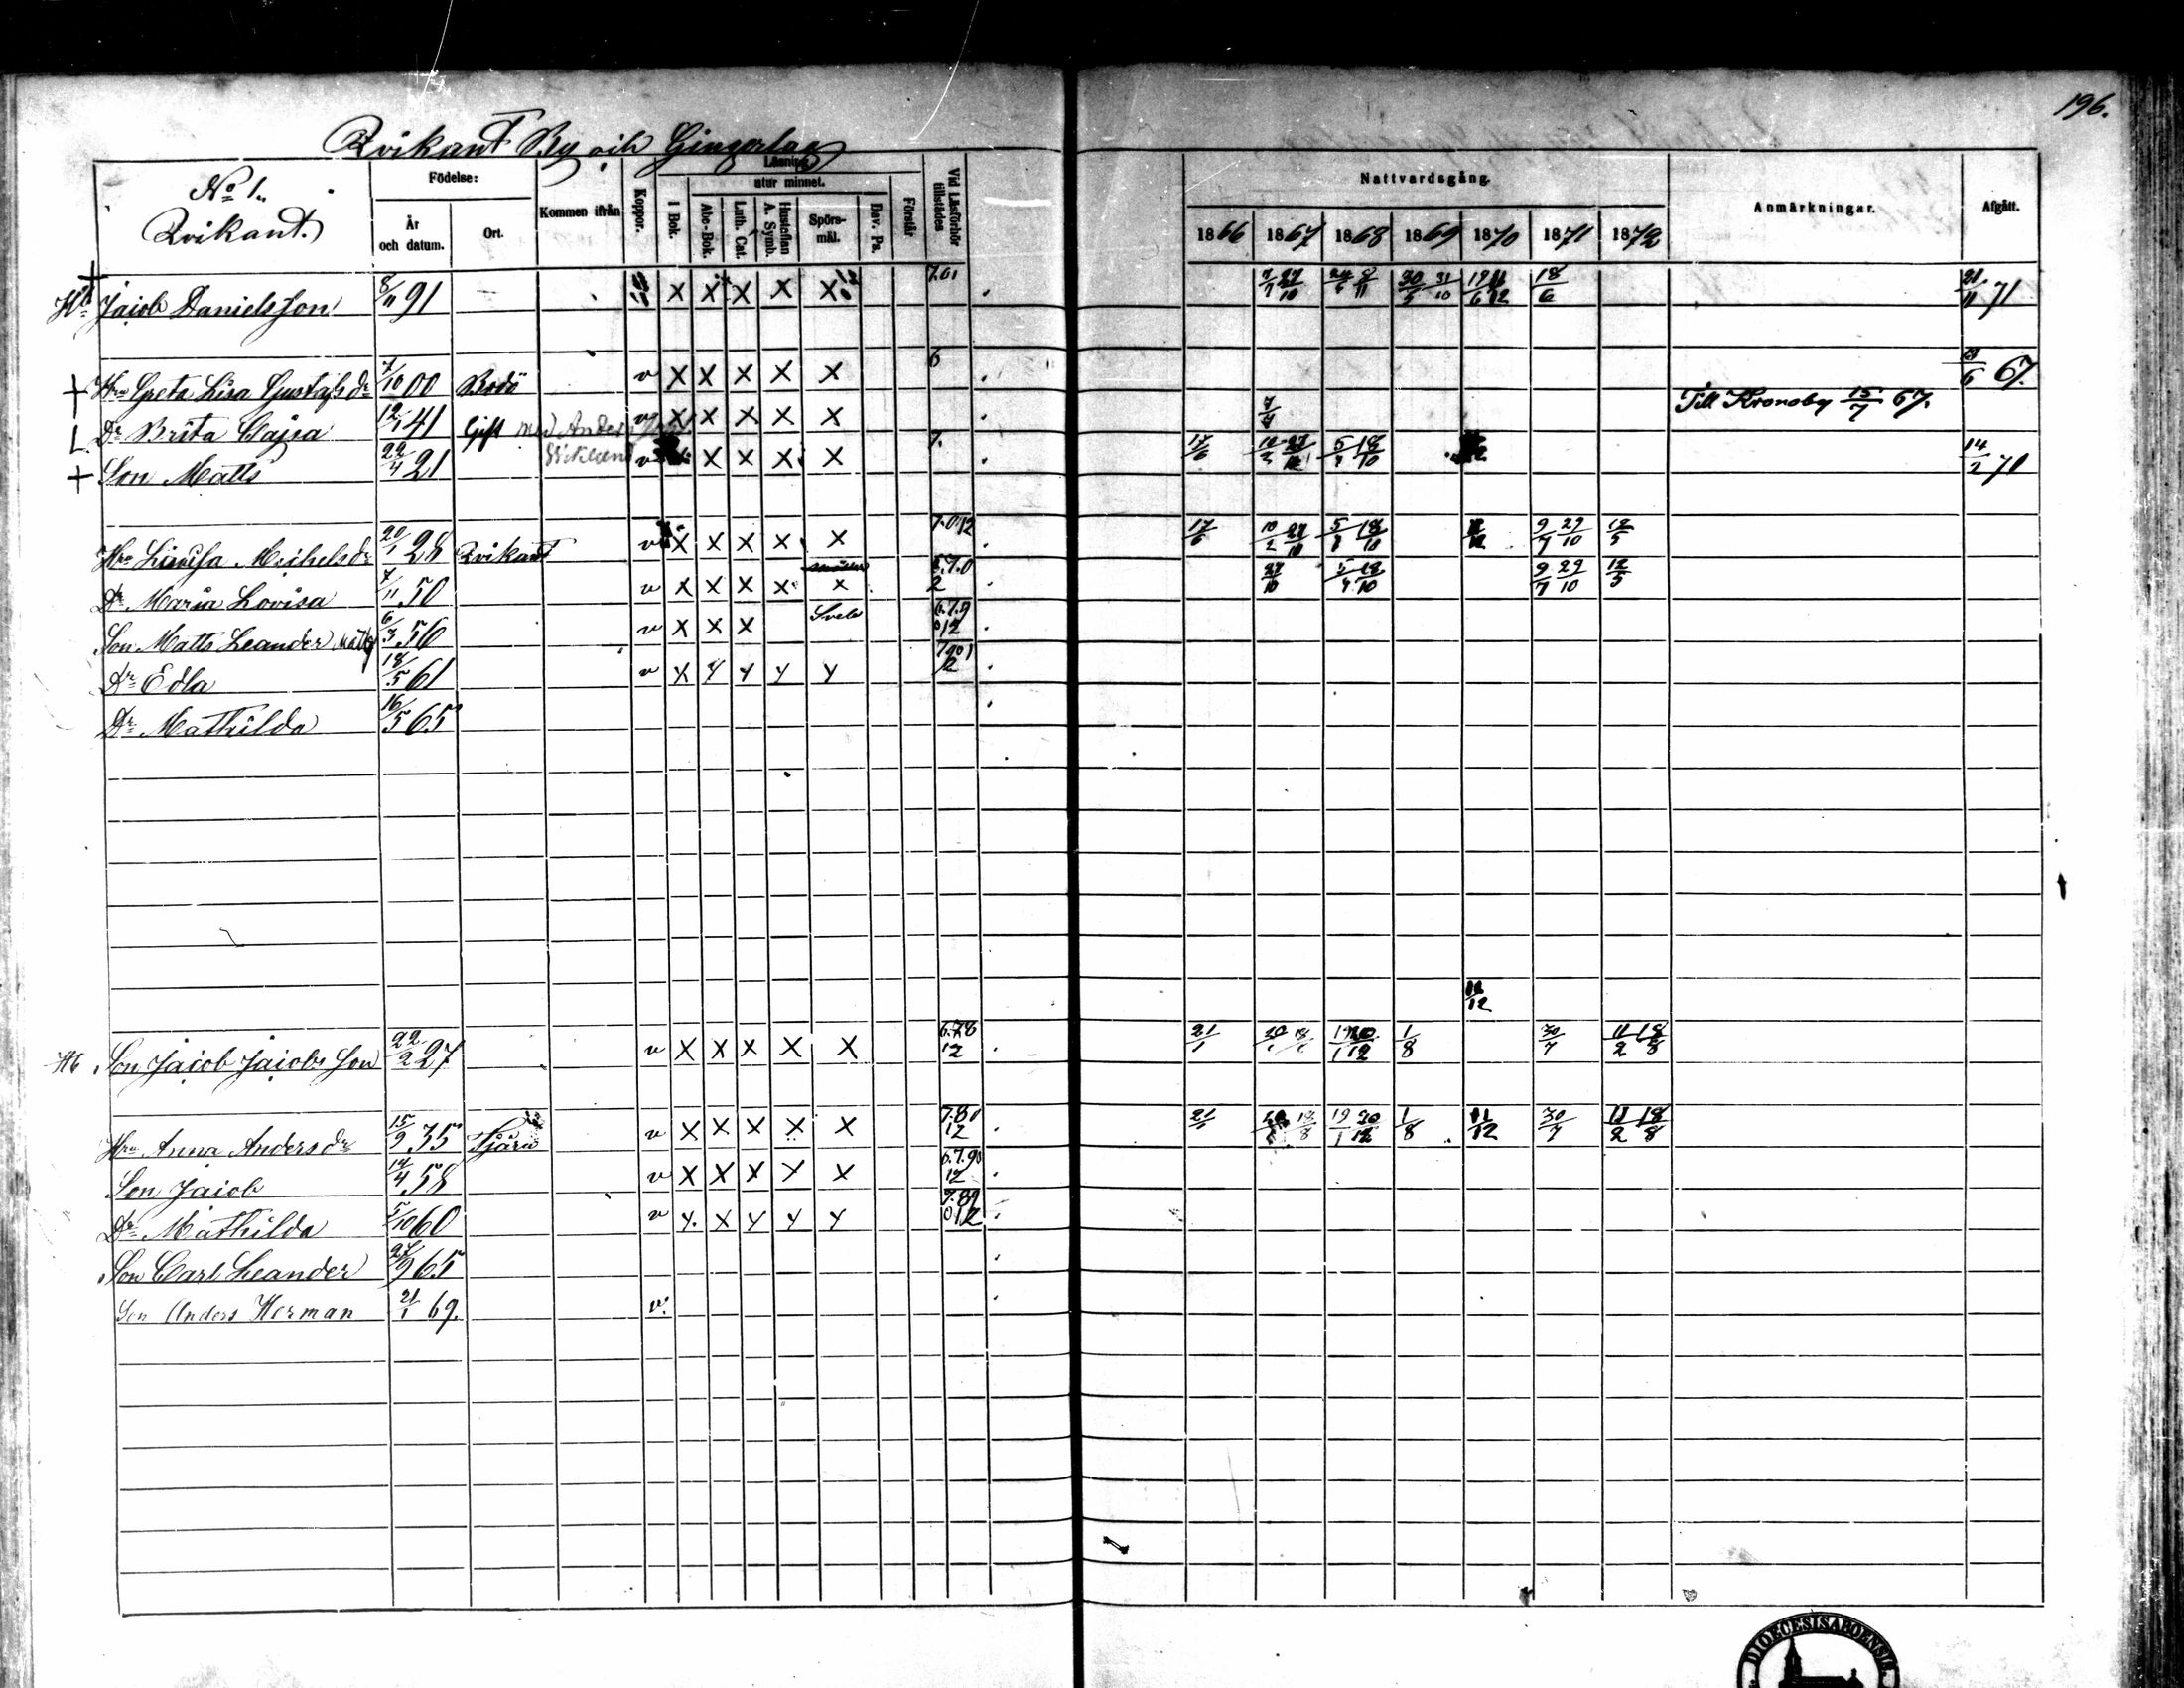 196.
Qvikant By och Gingerlag
No 1.
Qvikant.
Födelse:
År och datum.
Ort.
Kommen ifrån
Koppor.
Läsning
I Bok.
utur minnet.
Abc-Bok.
Luth. Cat.
Hustaflan A. Symb.
Spörsmål.
Dav. Ps.
Förstår
Vid Läsförhör tillstädes
Nattvardsgång.
1866 1867 1868 1869 1870 1871 1872
Anmärkningar.
Afgått.
Jacob Danielsson 8/11 91 X X X X X 7.01 30/5 31/10 18/6 21/11 71
+ Hu Greta Lisa Gustafsdr 7/10 00 Bodö v X X X X X 6 67.
Dr Brita Cajsa 12/1 41 Gift med Anders X X X X X Till Kronoby 15/7 67.
+ Son Matts 22/4 21 v X X X X 7. 17/6 5 18/10 14/2 70
Hu Lovisa Michelsdr 20/1 28 Qvikant v X X X X X 7.012 17/6 5 18/10 9/7 29/10 12/5
Dr Maria Lovisa 7/11 50 v X X X X X 6.7.0 2 27/10 5 18/10 9/7 29/10 12/5
Son Matts Leander 6/3 56 v X X X 6.7.9 012
Dr Edla 18/5 61 v X Y Y Y Y 7901 2
Dr Mathilda 16/5 65
12
Son Jacob Jacobsson 22/2 27 v X X X X X 6.78 12 21/1 1/8 30/7 11/2 18/8
Hu Anna Andersdr 15/9 35 v X X X X X 7.80 12 21/1 19/1 20/12 1/8 11/12 30/7 11/2 18/8
Son Jacob 14/4 58 v X X X Y X 6.7.90 12
Dr Mathilda 5/10 60 v Y. X Y Y Y 7.89 012
Son Carl Leander 27/9 65
Son Anders Herman 21/1 69. v.
DIOECESIS ABOENSIS.